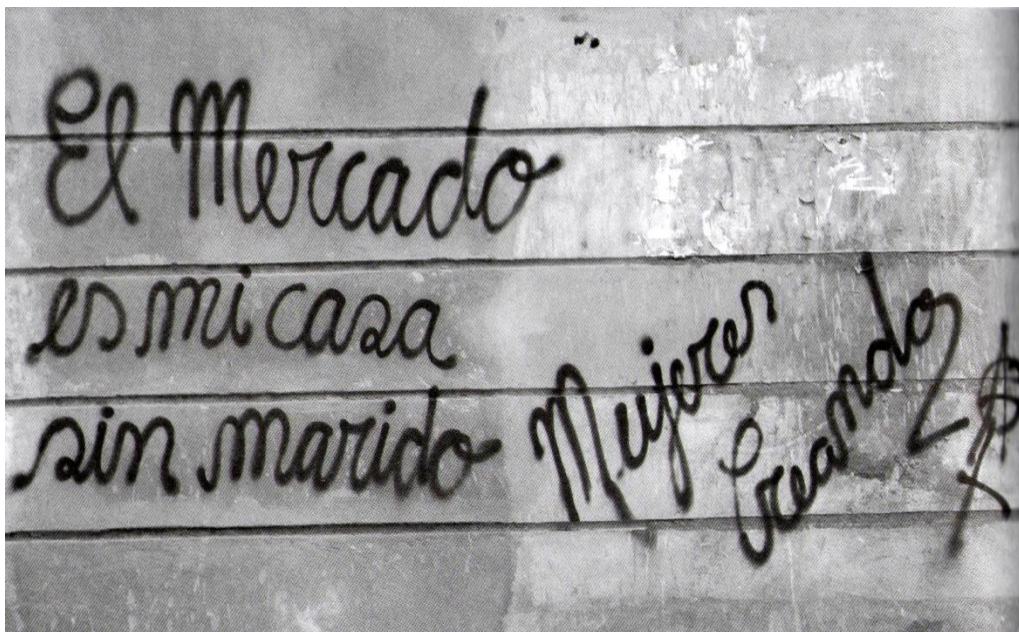 El Mercado
es mi casa
sin marido
Mujeres
Creando